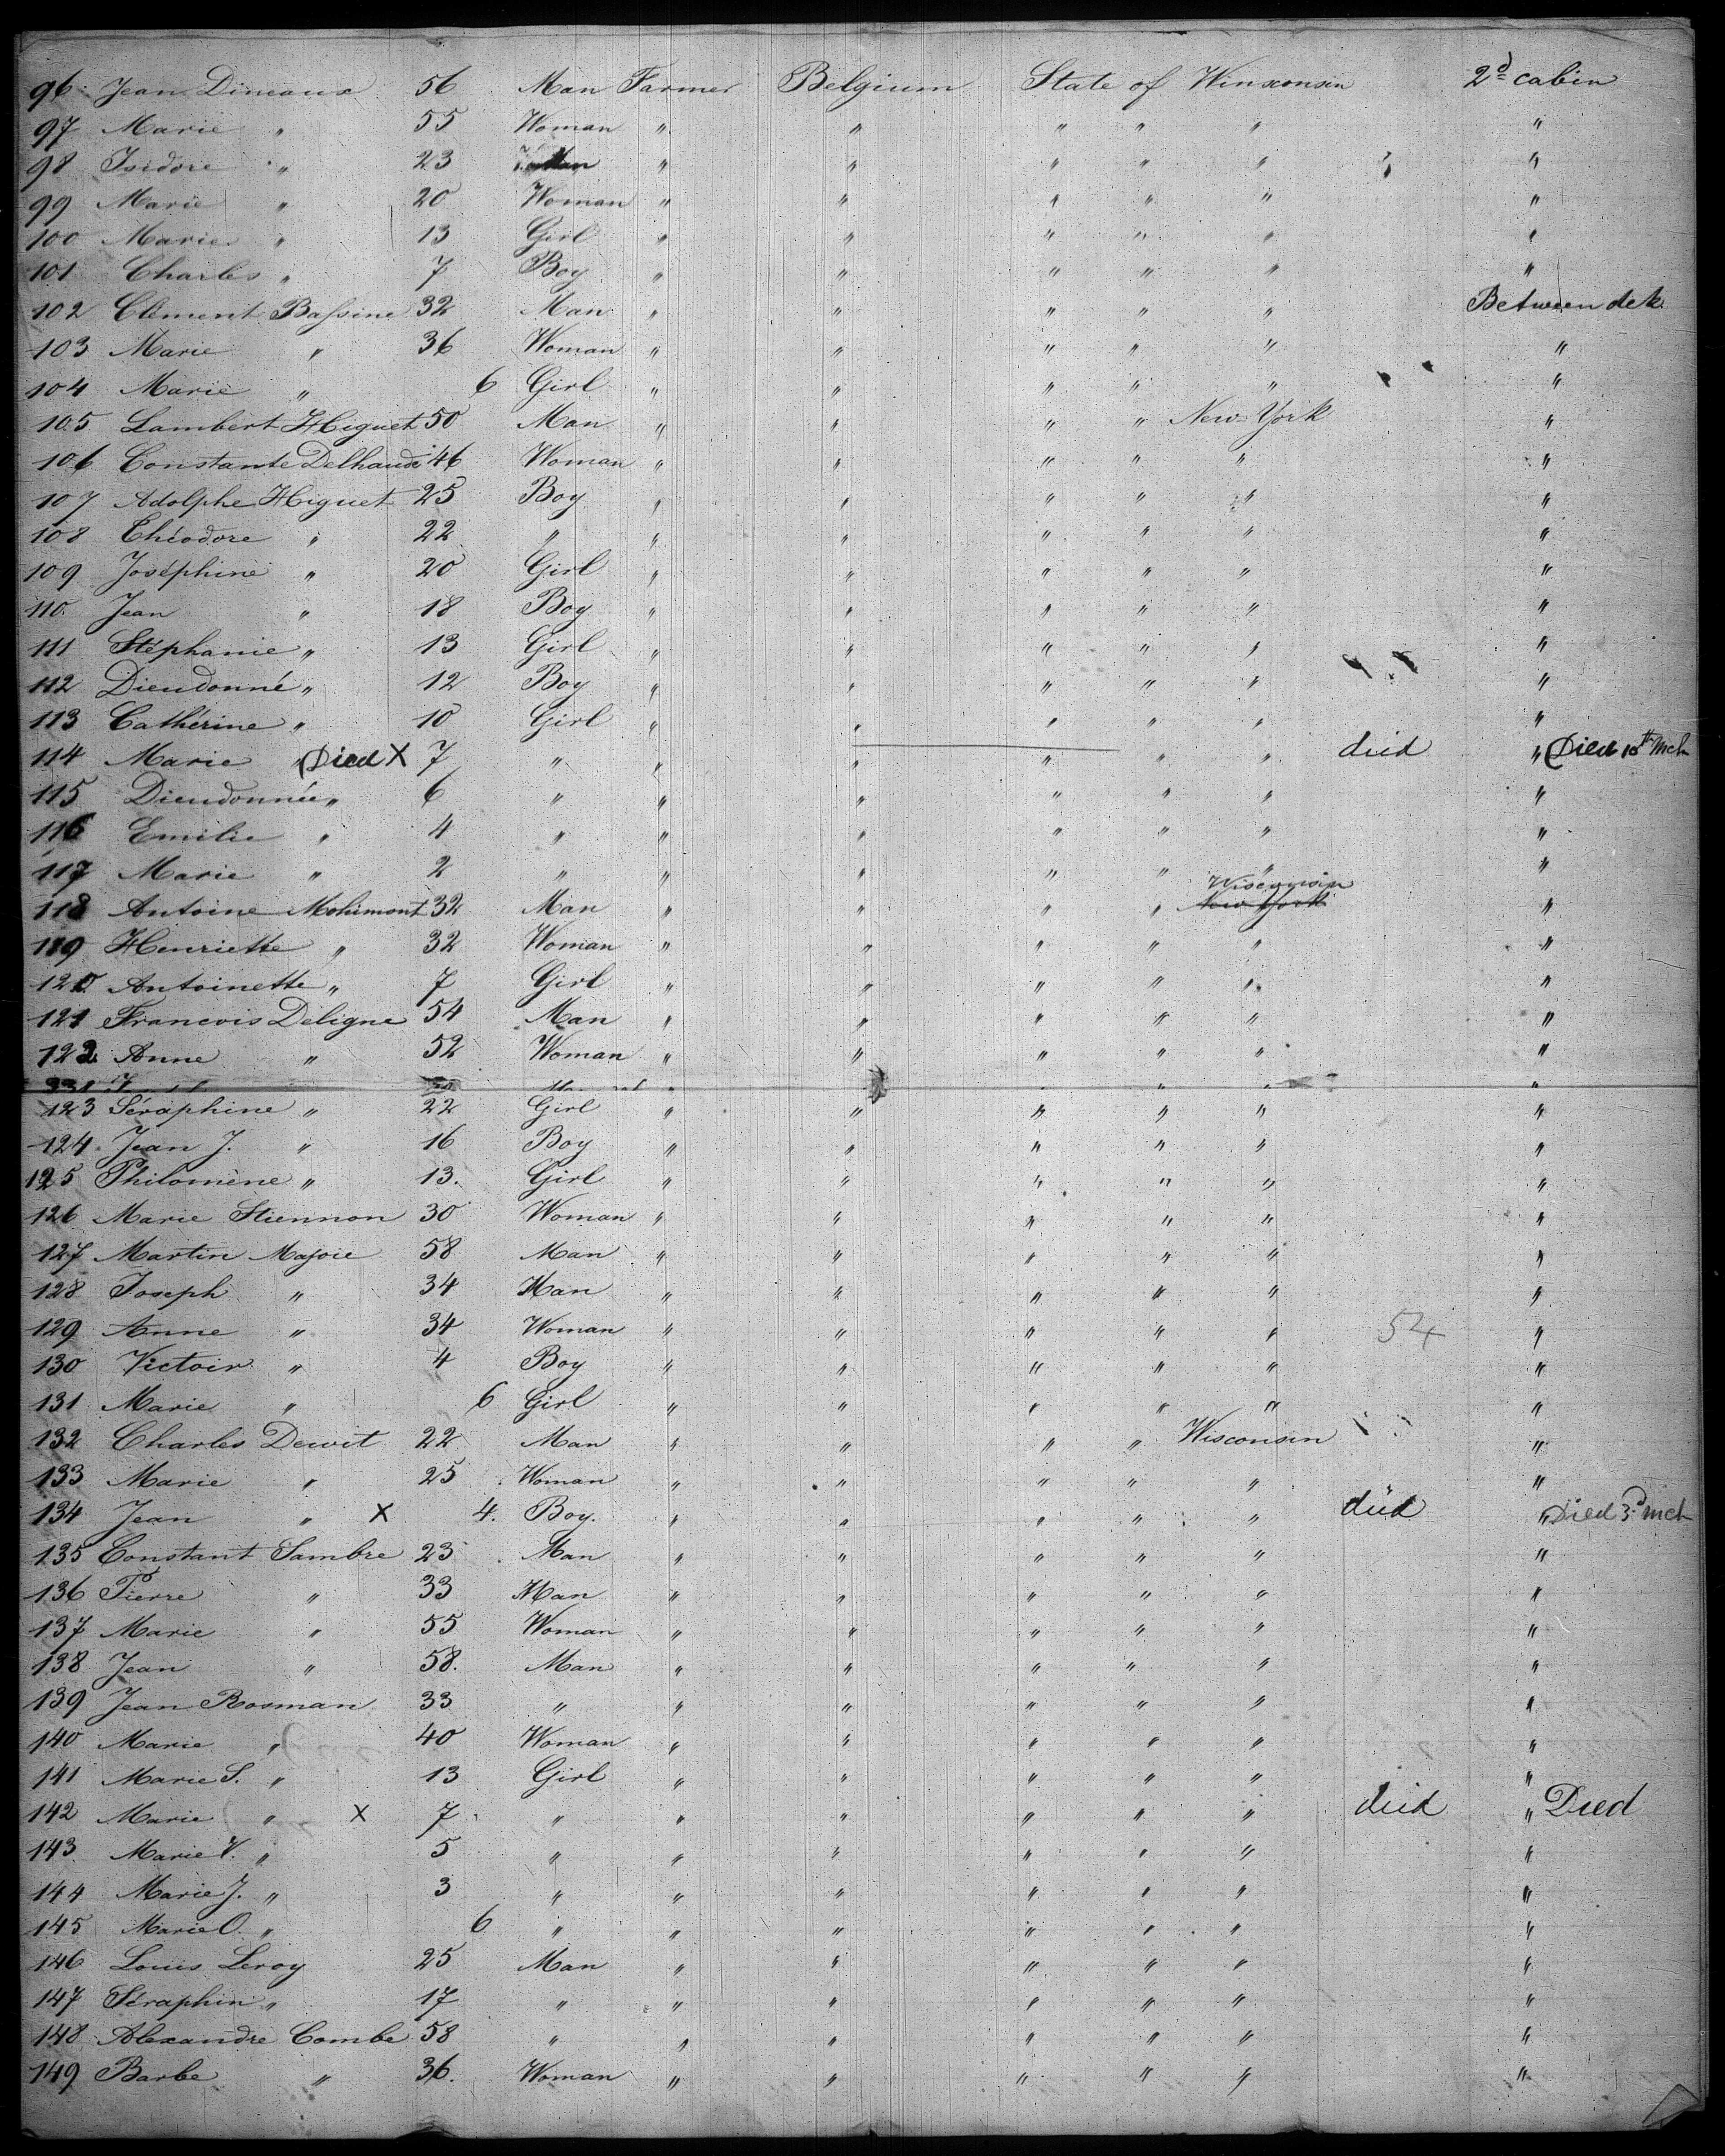 96 Jean Dineaux 56 Man Farmer Belgium State of Winsconsin 2d cabin
97 Marie " 55 Woman " " " " " "
98 Isidore " 23 Man " " " " " "
99 Marie " 20 Woman " " " " " "
100 Marie " 13 Girl " " " " " "
101 Charles " 7 Boy " " " " " "
102 Clément Bassine 32 Man " " " " " Between dek
103 Marie " 36 Woman " " " " " "
104 Marie " 6 Girl " " " " " "
105 Lambert Higuet 50 Man " " " " New-York "
106 Constante Delhaude 46 Woman " " " " " "
107 Adolphe Higuet 25 Boy " " " " " "
108 Théodore " 22 " " " " " " "
109 Joséphine " 20 Girl " " " " " "
110 Jean " 18 Boy " " " " " "
111 Stéphanie " 13 Girl " " " " " "
112 Dieudonné " 12 Boy " " " " " "
113 Cathérine " 10 Girl " " " " " "
114 Marie " (Died X 7 " " " " " " died " (Died 10th Mch
115 Dieudonnée " 6 " " " " " " "
116 Emilie " 4 " " " " " " "
117 Marie " 2 " " " " " " "
118 Antoine Mohimont 32 Man " " " " Wisconsin New York "
119 Henriette " 32 Woman " " " " " "
120 Antoinette " 7 Girl " " " " " "
121 Francois Deligne 54 Man " " " " " "
122 Anne " 52 Woman " " " " " "
123 Séraphine " 22 Girl " " " " " "
124 Jean J. " 16 Boy " " " " " "
125 Philomène " 13. Girl " " " " " "
126 Marie Stiennon 30 Woman " " " " " "
127 Martin Majoie 58 Man " " " " " "
128 Joseph " 34 Man " " " " " "
129 Anne " 34 Woman " " " " " 54 "
130 Victoir " 4 Boy " " " " " "
131 Marie " 6 Girl " " " " " "
132 Charles Dewit 22 Man " " " " Wisconsin "
133 Marie " 25 Woman " " " " " "
134 Jean " X 4. Boy. " " " " " died " Died 3d Mch
135 Constant Sambre 23 Man " " " " " "
136 Pierre " 33 Man " " " " " "
137 Marie " 55 Woman " " " " " "
138 Jean " 58. Man " " " " " "
139 Jean Rosman 33 " " " " " " "
140 Marie " 40 Woman " " " " " "
141 Marie S. " 13 Girl " " " " " "
142 Marie " X 7 " " " " " " died " Died
143 Marie V. " 5 " " " " " " "
144 Marie J. " 3 " " " " " " "
145 Marie O. " 6 " " " " " " "
146 Louis Leroy 25 Man " " " " " "
147 Séraphin " 17 " " " " " " "
148 Alexandre Combe 58 " " " " " " "
149 Barbe " 36. Woman " " " " " "